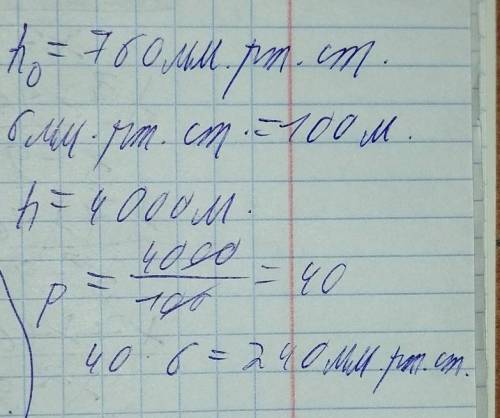 h₀ = 760 мм. рт. ст.
6 мм. рт. ст. = 100 м.
h = 4000 м.
p = 4000/100 = 40
40 · 6 = 240 мм. рт. ст.